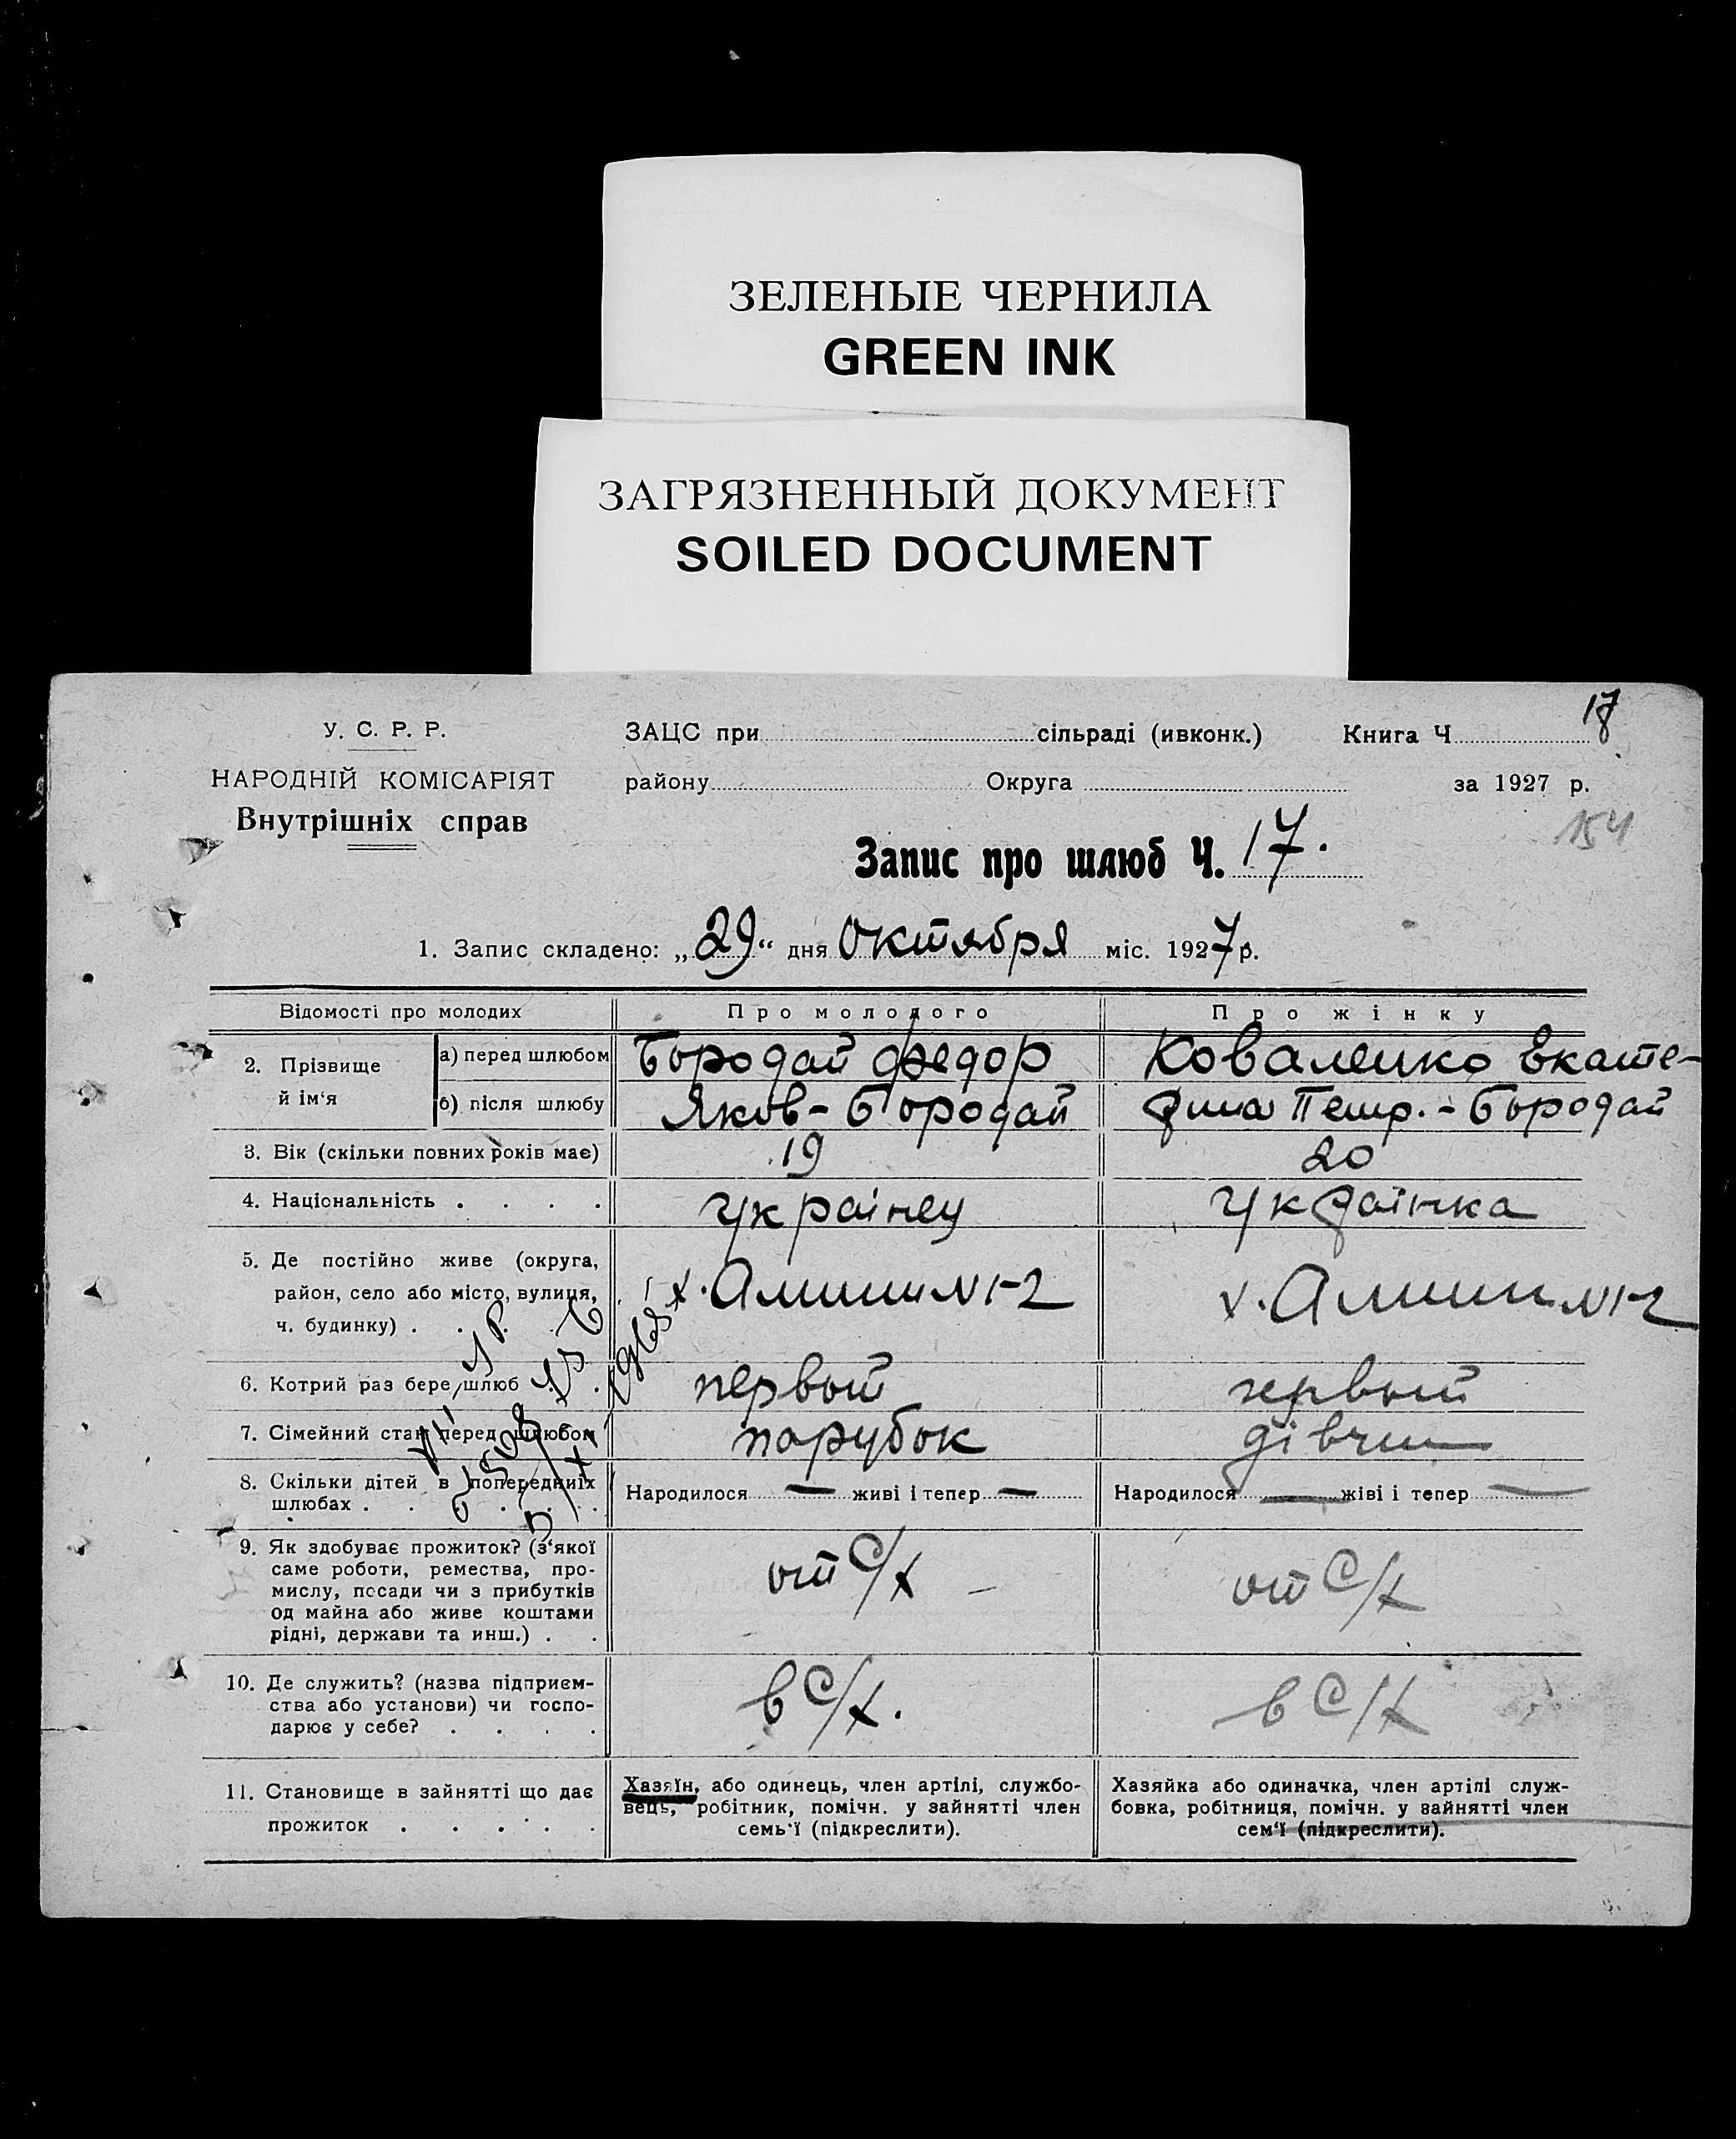 ЗЕЛЕНЫЕ ЧЕРНИЛА
GREEN INK
ЗАГРЯЗНЕННЫЙ ДОКУМЕНТ
SOILED DOCUMENT
17
У. С. Р. Р.
НАРОДНІЙ КОМІСАРІЯТ
Внутрішніх справ
ЗАЦС при сільраді (ивконк.) Книга Ч
району Округа за 1927 р.
154
Запис про шлюб Ч. 17.
1. Запис складено: „29“ дня Октября міс. 1927 р.
Відомості про молодих
Про молодого
Про жінку
2. Прізвище й ім‘я
а) перед шлюбом
Бородай Федор
Коваленко Екате-
б) після шлюбу
Яков- Бородай
рина Петр. - Бородай
3. Вік (скільки повних років має)
19
20
4. Національність . . . .
украінец
украінка
5. Де постійно живе (округа,
район, село або місто, вулиця,
ч. будинку) . . . .
х. №1-2
х. №1-2
6. Котрий раз бере шлюб . .
первый
первый
7. Сімейний стан перед шлюбом
парубок
дівчина
8. Скільки дітей в попередниіх
шлюбах . . . . . .
Народилося — живі і тепер —
Народилося — жіві і тепер —
9. Як здобуває прожиток? (з‘якої
саме роботи, ремества, про-
мислу, посади чи з прибутків
од майна або живе коштами
рідні, держави та инш.) . .
от с/х
от с/х
10. Де служить? (назва підприєм-
ства або установи) чи госпо-
дарює у себе? . . . .
в с/х.
в с/х
11. Становище в зайнятті що дає
прожиток . . . . .
Хазяїн, або одинець, член артілі, службо-
вець, робітник, помічн. у зайнятті член
семь‘ї (підкреслити).
Хазяйка або одиначка, член артілі служ-
бовка, робітниця, помічн. у зайнятті член
сем‘ї (підкреслити).